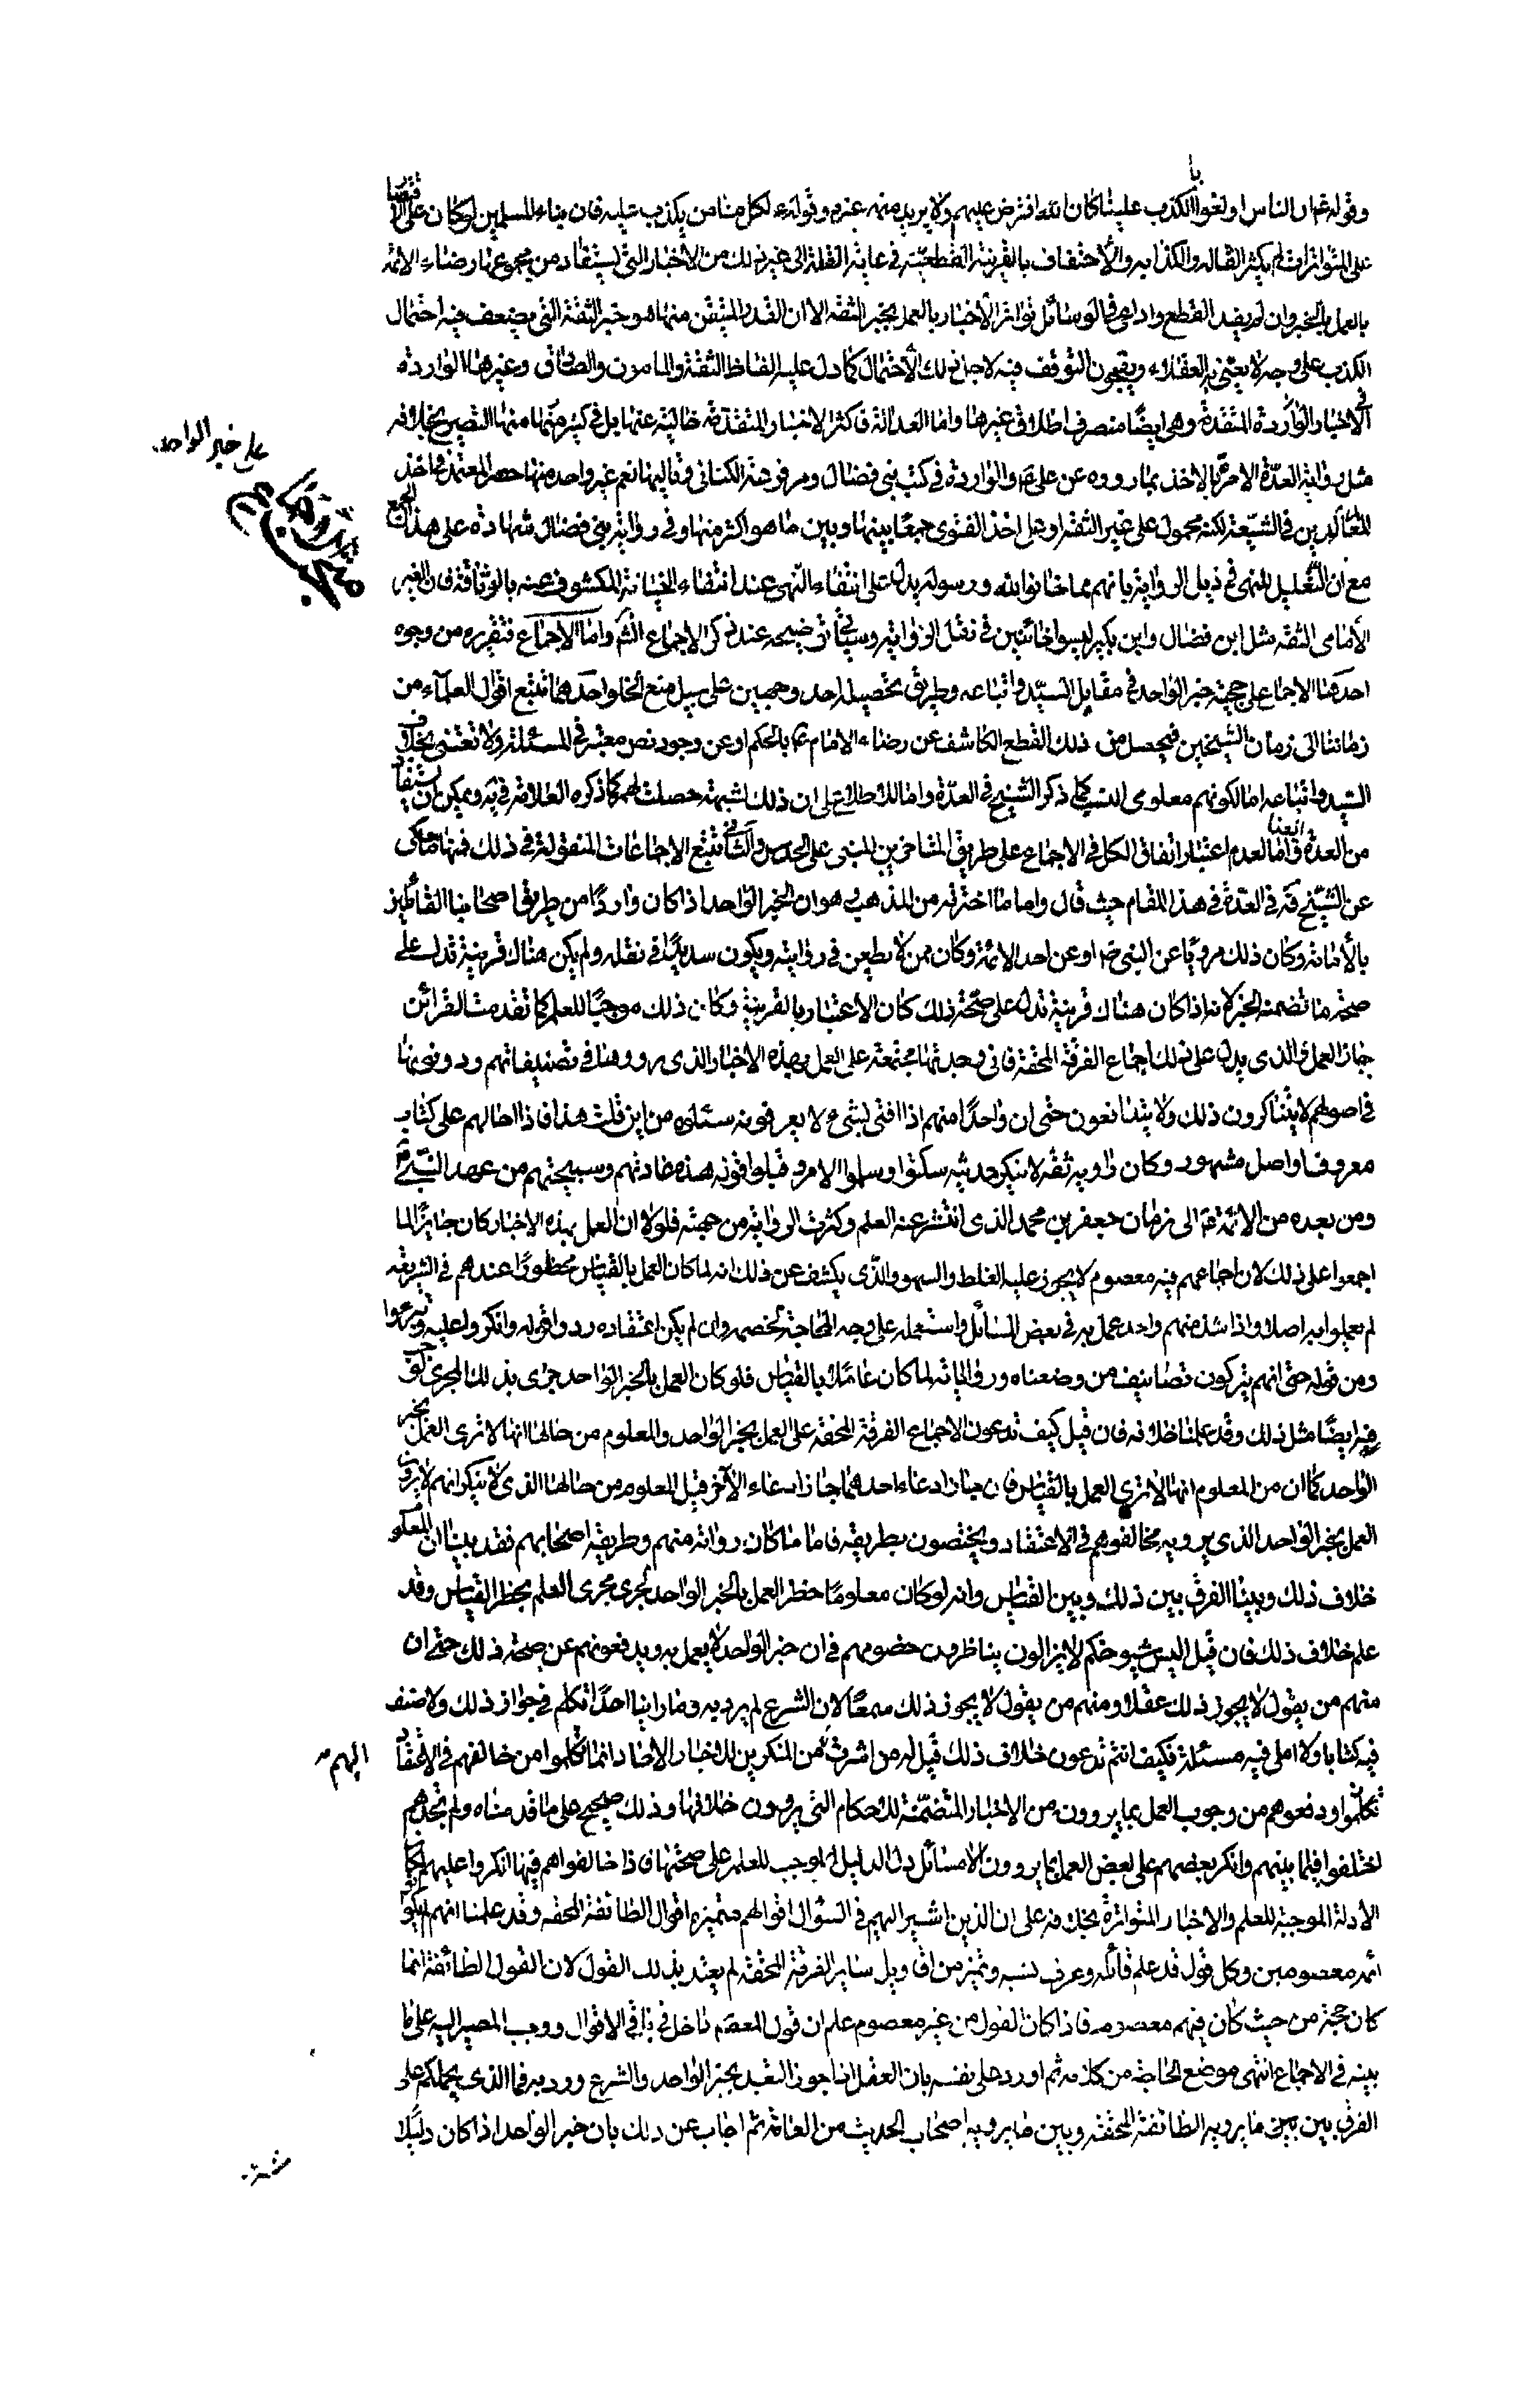 با
وقوله ع ان الناس اولعوا الكذب علينا كان الله افترض عليهم ولا يريد منهم غيره وقوله ع لكل منا من يكذب عليه فان بناء المسلمين لو كان على الاقتصار
على المتواترات لم يكثر القالة والكذابة والاحتفاف بالقرينة القطعية في غاية القلة الى غير ذلك من الاخبار التي يستفاد من مجموعها رضاء الائمة
بالعمل بالخبر وان لم يفد القطع وادعى في الوسائل تواتر الاخبار بالعمل بخبر الثقة الا ان القدر المتيقن منها هو خبر الثقة الذي يضعف فيه احتمال
الكذب على وجه لا يعتني به العقلاء ويقبحون التوقف فيه لاجل ذلك الاحتمال كما دل عليه الفاظ الثقة والمامون والصادق وغيرها الواردة
في
الاخبار الواردة المتقدمة وهي ايضا منصرف اطلاق غيرها واما العدالة فاكثر الاخبار المتقدمة خالية عنها بل في كثير منها التصريح بخلافه
مثل رواية العدة الامرة بالاخذ بما رووه عن علي ع والواردة في كتب بني فضال ومرفوعة الكناني وتاليها نعم غير واحد منها حصر المعتمد في اخذ
المعالم الدين في الشيعة لكنه محمول على غير الثقة او على اخذ الفتوى جمعا بينها وبين ما هو اكثر منها وفي رواية بني فضال شهادة على هذا الجمع
مع ان التعليل للنهي في ذيل الرواية بانهم مما خانوا الله ورسوله يدل على انتفاء النهي عند انتفاء الخيانة المكشوف عنه بالوثاقة فان الغير
الامامي الثقة مثل ابن فضال وابن بكير ليسوا خائنين في نقل الرواية وسياتي توضيحه عند ذكر الاجماع انشم واما الاجماع فتقريره من وجوه
احدها الاجماع على حجية خبر الواحد في مقابل السيد واتباعه وطريق تحصيله احد وجهين على سبيل منع الخلو احدهما تتبع اقوال العلماء من
زماننا الى زمان الشيخين فيحصل من ذلك القطع الكاشف عن رضاء الامام ع بالحكم او عن وجود نص معتبر في المسئلة ولا نعتني بخلاف
السيد واتباعه اما لكونهم معلومي النسب كما ذكر الشيخ في العدة واما للاطلاع على ان ذلك لشبهة حصلت لهم كما ذكره العلامة في ية ويمكن ان يستفاد
من العدة ايضا واما لعدم اعتبار اتفاق الكل في الاجماع على طريق المتاخرين المبني على الحدس والثاني تتبع الاجماعات المنقولة في ذلك فمنها ما حكي
عن الشيخ قه في العدة في هذا المقام حيث قال واما ما اخترته من المذهب فهو ان الخبر الواحد اذا كان واردا من طريق اصحابنا القائلين
بالامامة وكان ذلك مرويا عن النبي ص او عن احد الائمة وكان ممن لا يطعن في روايته ويكون سديدا في نقله ولم يكن هناك قرينة تدل على
صحة ما تضمنه الخبر لانه اذا كان هناك قرينة تدل على صحة ذلك كان الاعتبار بالقرينة وكان ذلك موجبا للعلم كما تقدمت القرائن
جاز العمل والذي يدل على ذلك اجماع الفرقة المحقة فاني وجدتها مجتمعة على العمل بهذه الاخبار الذي رووها في تصنيفاتهم ودونوها
في اصولهم لا يتناكرون ذلك ولا يتدافعون حتى ان واحدا منهم اذا افتى بشيء لا يعرفونه سئلوه من اين قلت هذا فاذا احالهم على كتاب
معروف او اصل مشهور وكان راويه ثقة لا ينكر حديثه سكتوا وسلموا الامر وقبلوا قوله هذه عادتهم وسجيتهم من عهد النبي ص
ومن بعده من الائمة ع الى زمان جعفر بن محمد الذي انتشر عنه العلم وكثرت الرواية من جهته فلولا ان العمل بهذه الاخبار كان جايزا لما
اجمعوا على ذلك لان اجماعهم فيه معصوم لا يجوز عليه الغلط والسهو والذي يكشف عن ذلك انه لما كان العمل بالقياس محظورا عندهم في الشريعة
لم يعملوا به اصلا واذا شذ منهم واحد عمل به في بعض المسائل واستعمله على وجه المحاجة لخصمه وان لم يكن اعتقاده ردوا قوله وانكروا عليه وتبرءوا
ومن قوله حتى انهم يتركون تصانيف من وصفناه ورواياته لما كان عاملا بالقياس فلو كان العمل بالخبر الواحد جرى بذلك المجرى لوجب
فيه ايضا مثل ذلك وقد علمنا خلافه فان قيل كيف تدعون الاجماع الفرقة المحقة على العمل بخبر الواحد والمعلوم من حالها انها لا ترى العمل بخبر
الواحد كما ان من المعلوم انها لا ترى العمل بالقياس فان جاز ادعاء احدهما جاز ادعاء الاخر قيل المعلوم من حالها الذي لا ينكر انهم لا يرون
العمل بخبر الواحد الذي يرويه مخالفوهم في الاعتقاد ويختصون بطريقه فاما ما كان رواته منهم وطريقه اصحابهم فقد بينا ان المعلوم
خلاف ذلك وبينا الفرق بين ذلك وبين القياس وانه لو كان معلوما حظر العمل بالخبر الواحد لجرى مجرى العلم بحظر القياس وقد
علم خلاف ذلك فان قيل اليس شيوخكم لا يزالون يناظرون خصومهم في ان خبر الواحد لا يعمل به ويدفعونهم عن صحة ذلك حتى ان
منهم من يقول لا يجوز ذلك عقلا ومنهم من يقول لا يجوز ذلك سمعا لان الشرع لم يرد به وما راينا احدا تكلم في جواز ذلك ولا صنف
فيه كتابا ولا املى فيه مسئلة فكيف انتم تدعون خلاف ذلك قيل له من اشرت من المنكرين للاخبار الاحاد انما تكلموا من خالفهم في الاعتقاد
اليهم
تكلموا ودفعوهم من وجوب العمل بما يروون من الاخبار المتضمنة للاحكام التي يروون خلافها وذلك صحيح على ما قدمناه ولم نجدهم
اختلفوا فيما بينهم وانكر بعضهم على بعض العمل بما يروون الا مسائل دل الدليل الموجب للعلم على صحتها فاذا خالفواهم فيها انكروا عليهم لمكان
الادلة الموجبة للعلم والاخبار المتواترة بخلافه على ان الذين اشير اليهم في السؤال اقوالهم متميزة اقوال الطائفة المحقة وقد علمنا انهم لم يكونوا
ائمة معصومين وكل قول قد علم قائله وعرف نسبه وتميز من اقاويل ساير الفرقة المحقة لم يعتد بذلك القول لان القول الطائفة انما
كان حجة من حيث كان فيهم معصوم فاذا كان القول من غير معصوم علم ان قول المعصوم داخل في باقي الاقوال ووجب المصير اليه على ما
بينه في الاجماع انتهى موضع الحاجة من كلامه ثم اورد على نفسه بان العقل اذا جوز التعبد بخبر الواحد والشرع ورد به فما الذي يحملكم على
الفرق بين بين ما يرويه الطائفة المحقة وبين ما يرويه اصحاب الحديث من العامة ثم اجاب عن ذلك بان خبر الواحد اذا كان دليلا
على خبر الواحد